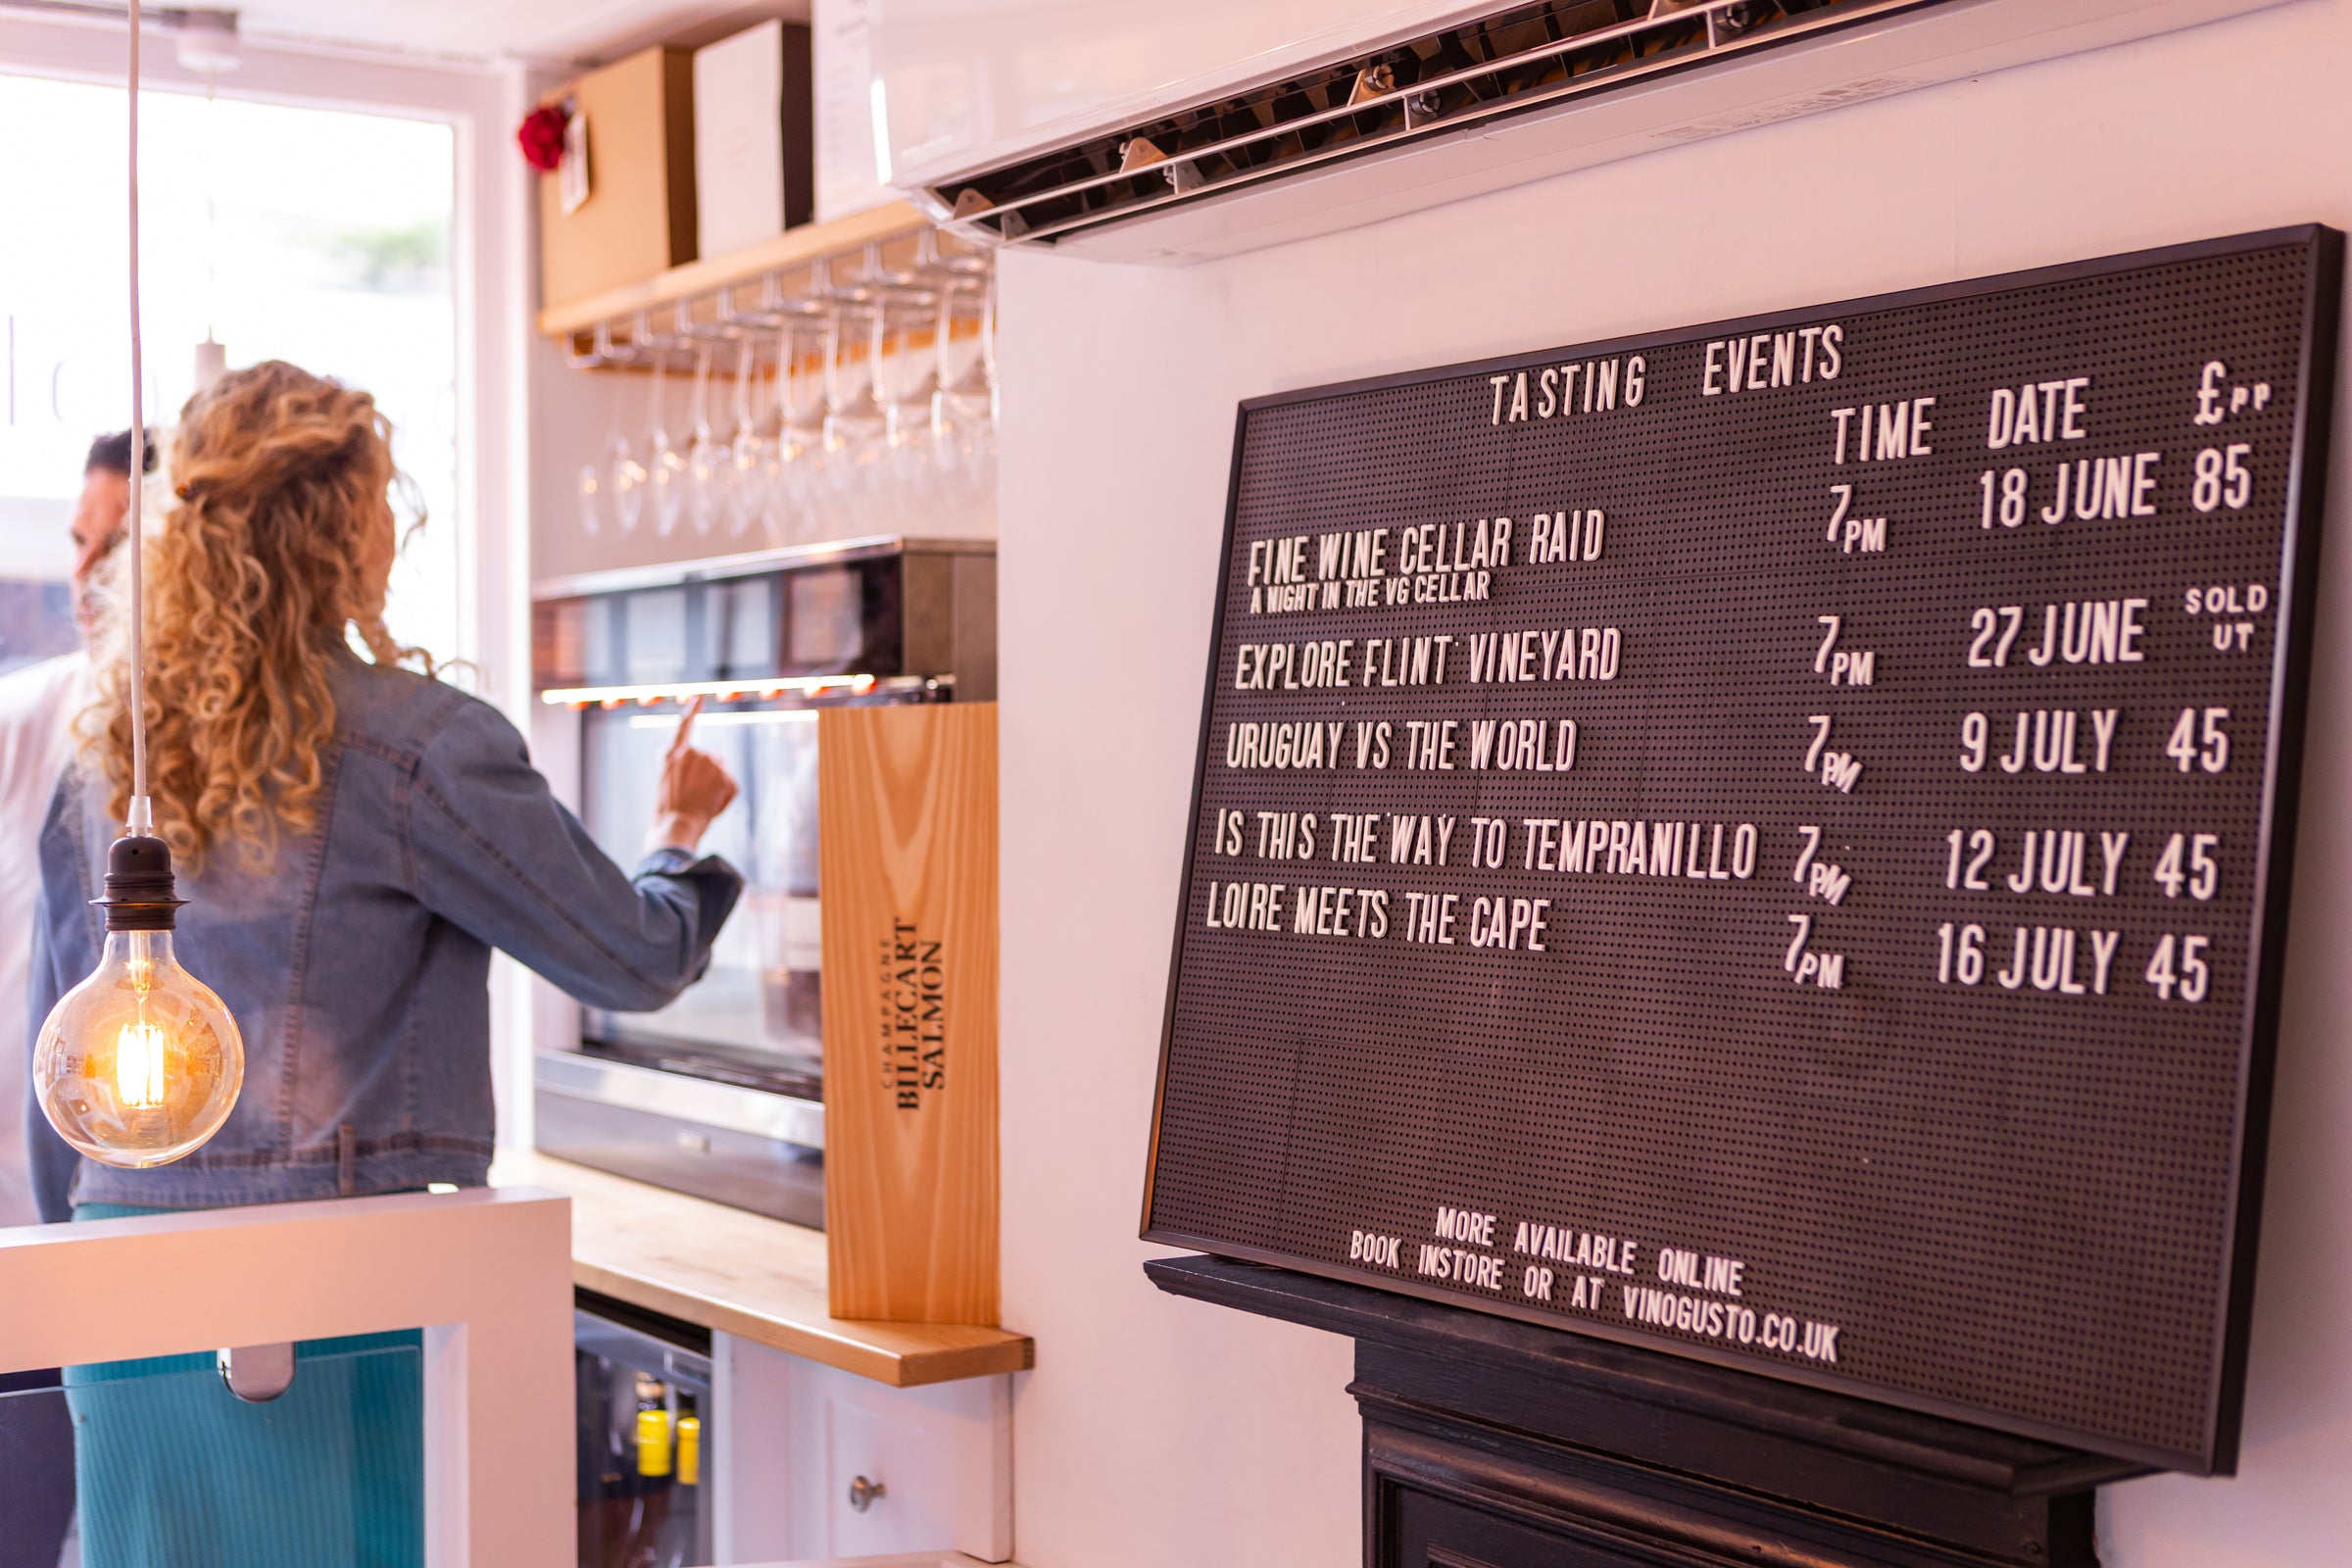 TASTING EVENTS
TIME DATE £PP
FINE WINE CELLAR RAID 7PM 18 JUNE 85
A NIGHT IN THE VG CELLAR
EXPLORE FLINT VINEYARD 7PM 27 JUNE SOLD UT
URUGUAY VS THE WORLD 7PM 9 JULY 45
IS THIS THE WAY TO TEMPRANILLO 7PM 12 JULY 45
LOIRE MEETS THE CAPE 7PM 16 JULY 45
MORE AVAILABLE ONLINE
BOOK INSTORE OR AT VINOGUSTO.CO.UK
CHAMPAGNE
BILLECART
SALMON